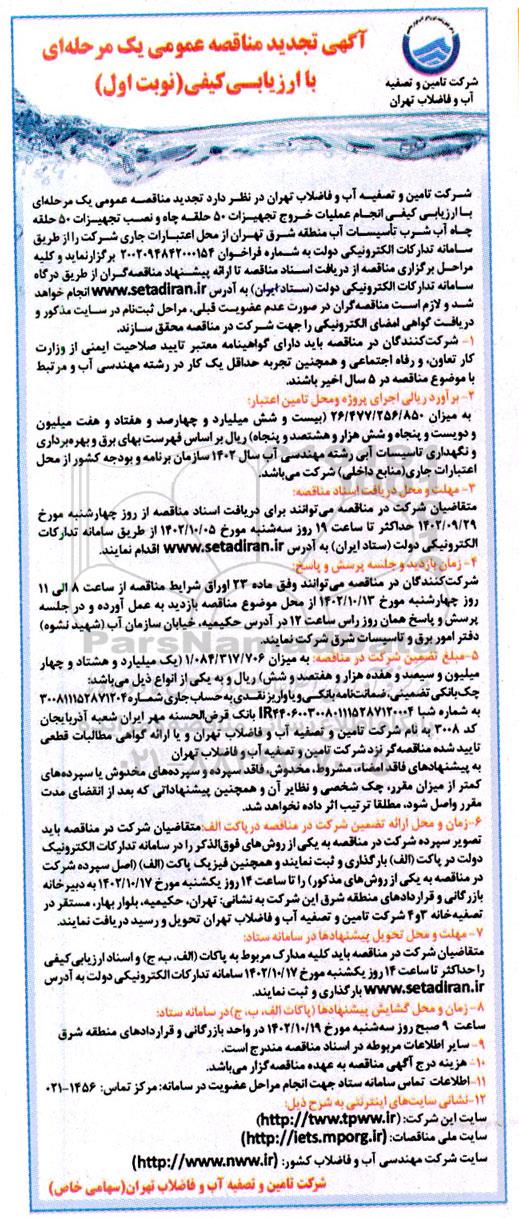 آگهی تجدید مناقصه عمومی یک مرحله‌ای
با ارزیابی کیفی (نوبت اول)
شرکت تامین و تصفیه
آب و فاضلاب تهران
شرکت تامین و تصفیه آب و فاضلاب تهران در نظر دارد تجدید مناقصه عمومی یک مرحله‌ای
با ارزیابی کیفی انجام عملیات خروج تجهیزات ۵۰ حلقه چاه و نصب تجهیزات ۵۰ حلقه
چاه آب شرب تأسیسات آب منطقه شرق تهران از محل اعتبارات جاری شرکت را از طریق
سامانه تدارکات الکترونیکی دولت به شماره فراخوان ۲۰۰۲۰۹۴۸۴۲۰۰۰۱۵۴ برگزار نماید و کلیه
مراحل برگزاری مناقصه از دریافت اسناد مناقصه تا ارائه پیشنهاد مناقصه‌گران از طریق درگاه
سامانه تدارکات الکترونیکی دولت (ستاد ایران) به آدرس www.setadiran.ir انجام خواهد
شد و لازم است مناقصه‌گران در صورت عدم عضویت قبلی، مراحل ثبت‌نام در سایت مذکور و
دریافت گواهی امضای الکترونیکی را جهت شرکت در مناقصه محقق سازند.
۱- شرکت‌کنندگان در مناقصه باید دارای گواهینامه معتبر تایید صلاحیت ایمنی از وزارت
کار تعاون، و رفاه اجتماعی و همچنین تجربه حداقل یک کار در رشته مهندسی آب و مرتبط
با موضوع مناقصه در ۵ سال اخیر باشند.
۲- برآورد ریالی اجرای پروژه ومحل تامین اعتبار:
به میزان ۲۶/۴۷۷/۲۵۶/۸۵۰ (بیست و شش میلیارد و چهارصد و هفتاد و هفت میلیون
و دویست و پنجاه و شش هزار و هشتصد و پنجاه) ریال بر اساس فهرست بهای برق و بهره‌برداری
و نگهداری تاسیسات آبی رشته مهندسی آب سال ۱۴۰۲ سازمان برنامه و بودجه کشور از محل
اعتبارات جاری (منابع داخلی) شرکت می‌باشد.
۳- مهلت و محل دریافت اسناد مناقصه:
متقاضیان شرکت در مناقصه می‌توانند برای دریافت اسناد مناقصه از روز چهارشنبه مورخ
۱۴۰۲/۰۹/۲۹ حداکثر تا ساعت ۱۹ روز سه‌شنبه مورخ ۱۴۰۲/۱۰/۰۵ از طریق سامانه تدارکات
الکترونیکی دولت (ستاد ایران) به آدرس www.setadiran.ir اقدام نمایند.
۴- زمان بازدید و جلسه پرسش و پاسخ:
شرکت‌کنندگان در مناقصه می‌توانند وفق ماده ۲۳ اوراق شرایط مناقصه از ساعت ۸ الی ۱۱
روز چهارشنبه مورخ ۱۴۰۲/۱۰/۱۳ از محل موضوع مناقصه بازدید به عمل آورده و در جلسه
پرسش و پاسخ همان روز راس ساعت ۱۲ در آدرس حکیمیه، خیابان سازمان آب (شهید نشوه)
دفتر امور برق و تاسیسات شرق شرکت نمایند.
۵-مبلغ تضمین شرکت در مناقصه: به میزان ۱/۰۸۴/۳۱۷/۷۰۶ (یک میلیارد و هشتاد و چهار
میلیون و سیصد و هفده هزار و هفتصد و شش) ریال و به یکی از انواع ذیل می‌باشد:
چک‌بانکی تضمینی، ضمانت‌نامه بانکی و یا واریز نقدی به حساب جاری شماره ۳۰۰۸۱۱۱۵۲۸۷۱۲۰۴
به شماره شبا IR۴۴۰۶۰۰۳۰۰۸۰۱۱۱۵۲۸۷۱۲۰۰۴ بانک قرض‌الحسنه مهر ایران شعبه آذربایجان
کد ۳۰۰۸ به نام شرکت تامین و تصفیه آب و فاضلاب تهران و یا ارائه گواهی مطالبات قطعی
تایید شده مناقصه‌گر نزد شرکت تامین و تصفیه آب و فاضلاب تهران
به پیشنهادهای فاقد امضاء، مشروط، مخدوش، فاقد سپرده و سپرده‌های مخدوش یا سپرده‌های
کمتر از میزان مقرر، چک شخصی و نظایر آن و همچنین پیشنهاداتی که بعد از انقضای مدت
مقرر واصل شود، مطلقا ترتیب اثر داده نخواهد شد.
۶-زمان و محل ارائه تضمین شرکت در مناقصه در پاکت الف: متقاضیان شرکت در مناقصه باید
تصویر سپرده شرکت در مناقصه به یکی از روش‌های فوق‌الذکر را در سامانه تدارکات الکترونیک
دولت در پاکت (الف) بارگذاری و ثبت نمایند و همچنین فیزیک پاکت (الف) (اصل سپرده شرکت
در مناقصه به یکی از روش‌های مذکور) را تا ساعت ۱۴ روز یکشنبه مورخ ۱۴۰۲/۱۰/۱۷ به دبیرخانه
بازرگانی و قراردادهای منطقه شرق این شرکت به نشانی: تهران، حکیمیه، بلوار بهار، مستقر در
تصفیه‌خانه ۳و۴ شرکت تامین و تصفیه آب و فاضلاب تهران تحویل و رسید دریافت نمایند.
۷- مهلت و محل تحویل پیشنهادها در سامانه ستاد:
متقاضیان شرکت در مناقصه باید کلیه مدارک مربوط به پاکات (الف، ب، ج) و اسناد ارزیابی کیفی
را حداکثر تا ساعت ۱۴ روز یکشنبه مورخ ۱۴۰۲/۱۰/۱۷ سامانه تدارکات الکترونیکی دولت به آدرس
www.setadiran.ir بارگذاری و ثبت نمایند.
۸- زمان و محل گشایش پیشنهادها (پاکات الف، ب، ج) در سامانه ستاد:
ساعت ۹ صبح روز سه‌شنبه مورخ ۱۴۰۲/۱۰/۱۹ در واحد بازرگانی و قراردادهای منطقه شرق
۹- سایر اطلاعات مربوطه در اسناد مناقصه مندرج است.
۱۰- هزینه درج آگهی مناقصه به عهده مناقصه‌گزار می‌باشد.
۱۱-اطلاعات تماس سامانه ستاد جهت انجام مراحل عضویت در سامانه: مرکز تماس: ۱۴۵۶-۰۲۱
۱۲-نشانی سایت‌های اینترنتی به شرح ذیل:
سایت این شرکت: (http://tww.tpww.ir)
سایت ملی مناقصات: (http://iets.mporg.ir)
سایت شرکت مهندسی آب و فاضلاب کشور: (http://www.nww.ir)
شرکت تامین و تصفیه آب و فاضلاب تهران (سهامی خاص)